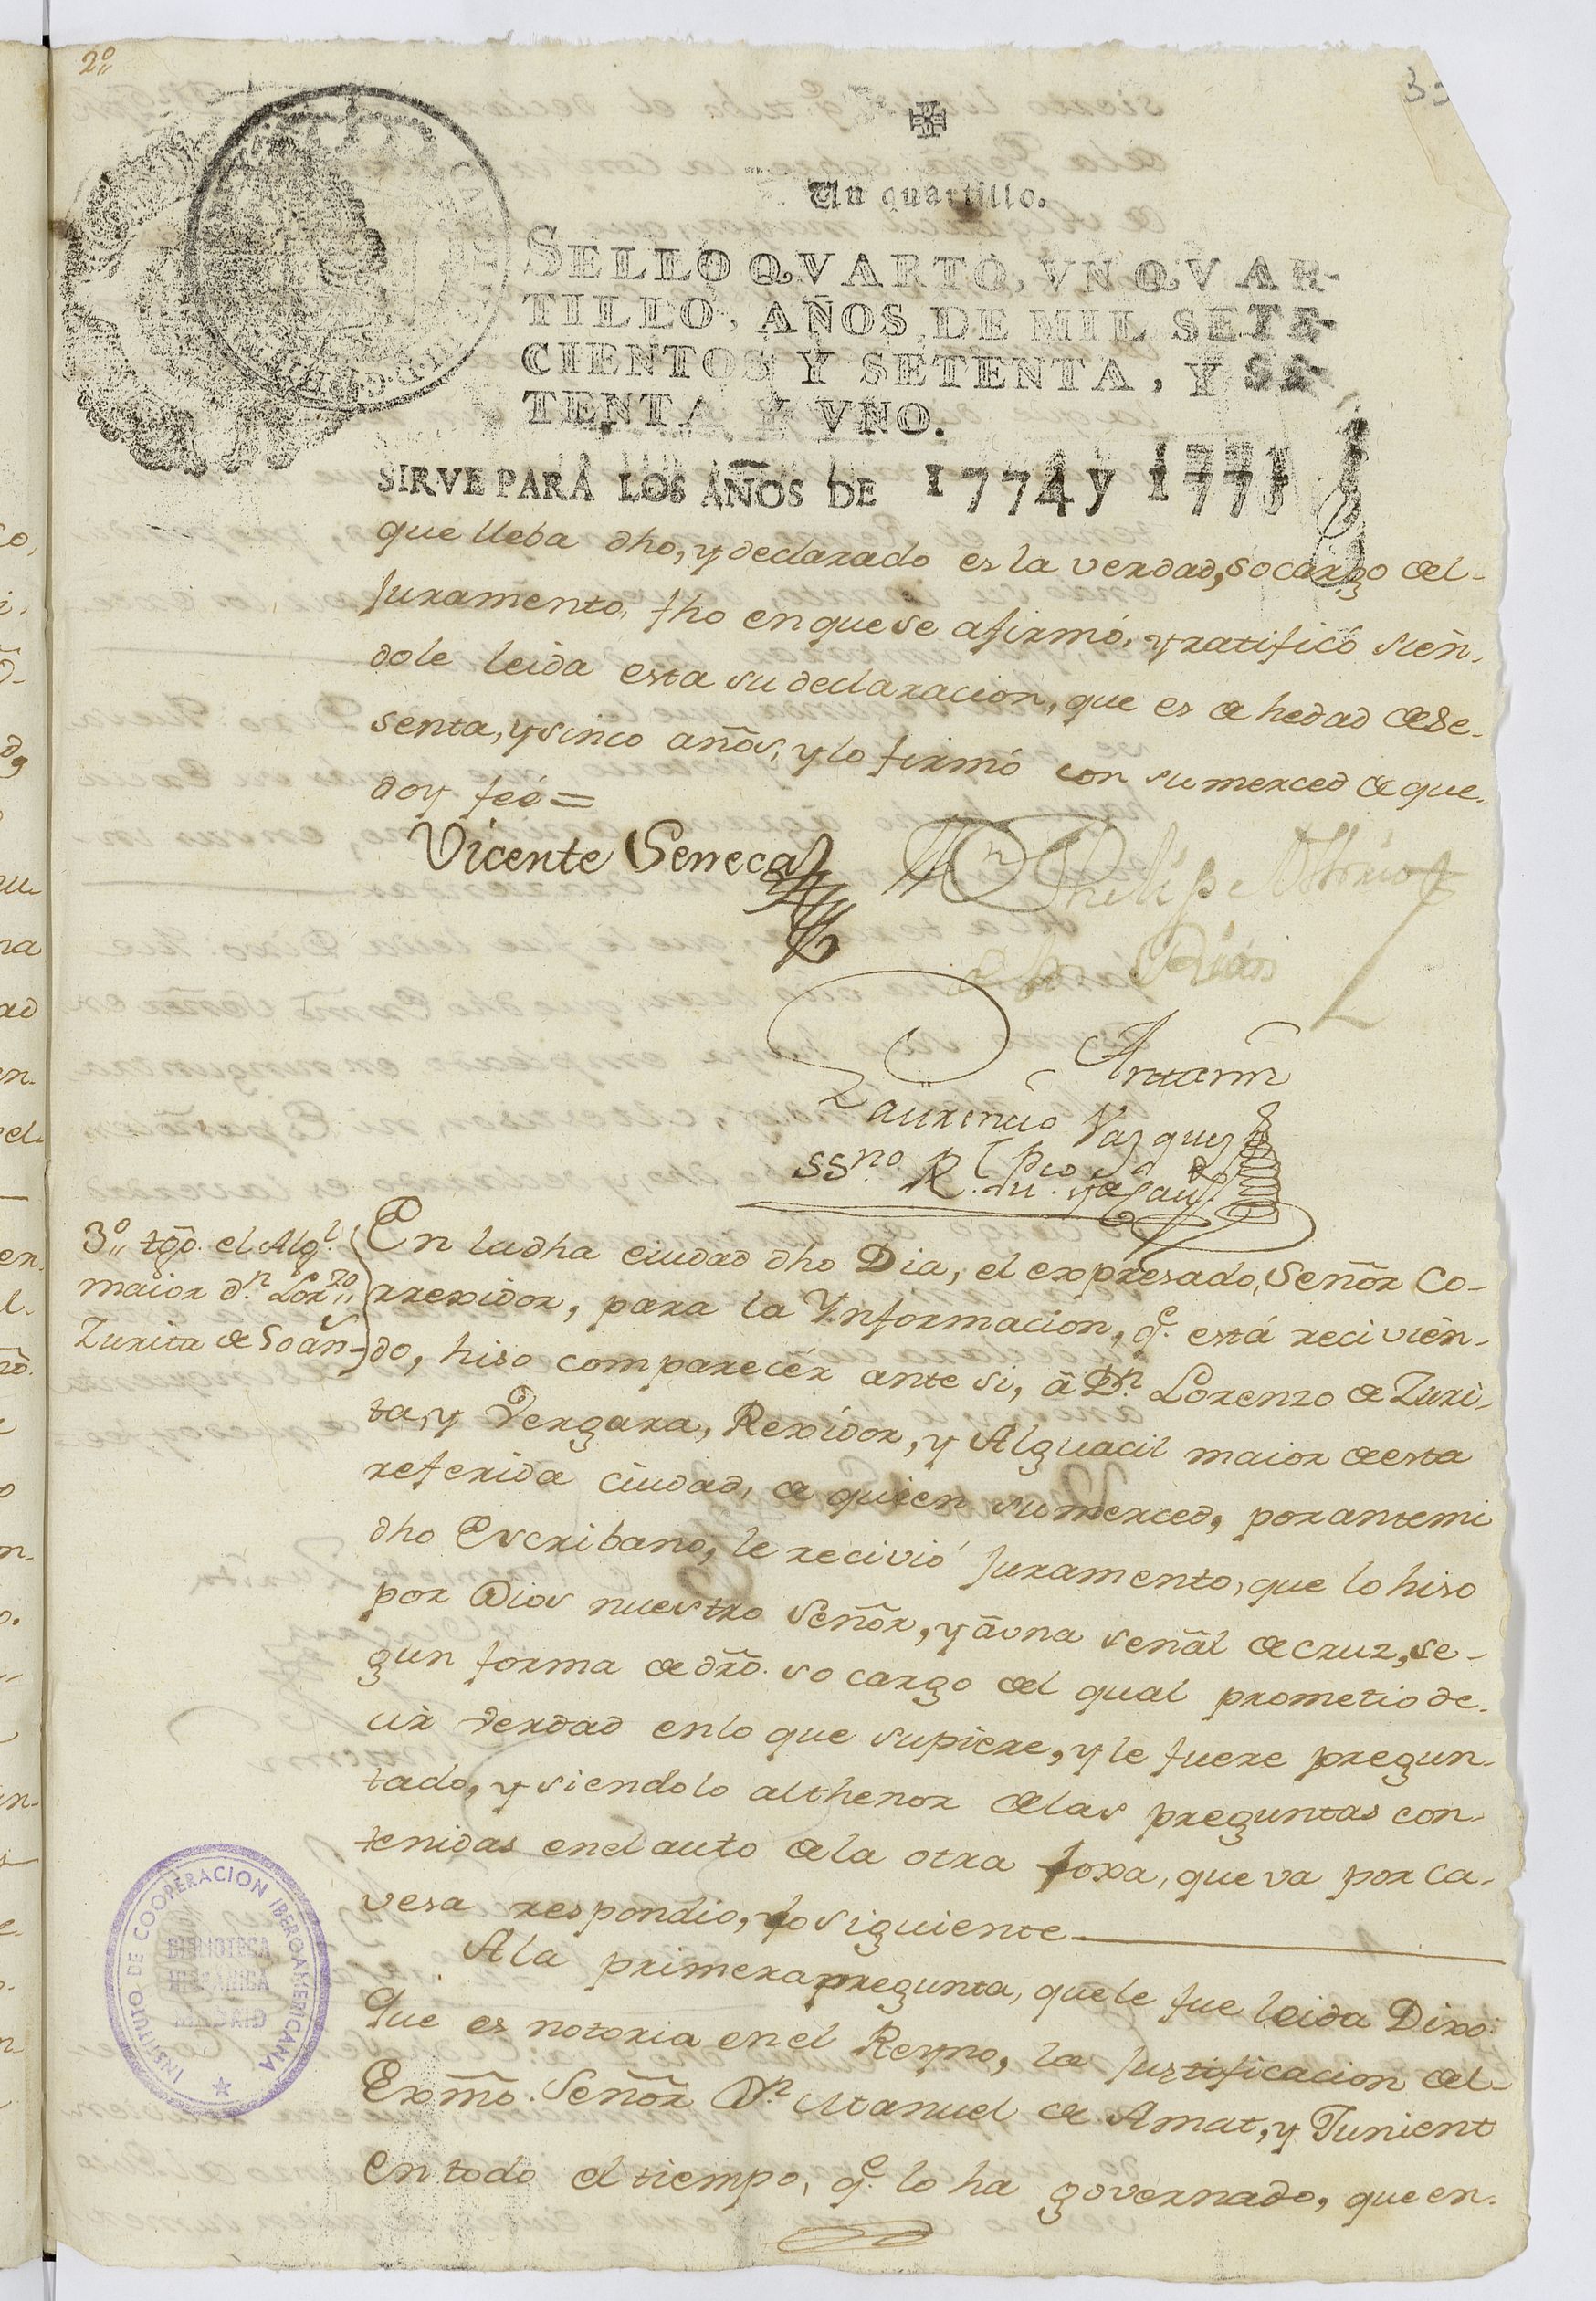 2º
Un quartillo.
SELLO QVARTO, VN QVAR-
TILLO, AÑOS DE MIL SETE-
CIENTOS Y SETENTA, Y SE-
TENTA Y VNO.
SIRVE PARA LOS AÑOS DE 1774 y 1775
que lleba dho, y declarado es la verdad, so cargo del-
Juramento, fho en que se afirmó, y ratificó sien-
dole leida esta su declaracion, que es de hedad de se-
senta, y sinco años, y lo firmó con su merced de que-
doy feé =
Vicente Seneca
Antemi
Laurencio Vazquez
SSno. R.
3º tgo. el Algl.
maior dn. Lorzo
Zurita de Soan
En la dha ciudad dho Dia, el expresado, Señor Co-
rrexidor, para la Ynformacion, qe. está recivien-
do, hiso comparecér ante si, â Dn. Lorenzo de Zuri-
ta, y Vergara, Rexidor, y Alguacil maior de esta
referida ciudad, de quien su merced, por ante mi
dho Escribano, le recivió Juramento, que lo hiso
por Dios nuestro Señor, y âuna señal de cruz, se-
gun forma de dro. so cargo del qual prometio de-
cir verdad en lo que supiere, y le fuere pregun-
tado, y siendolo al thenor de las preguntas con-
tenidas en el auto de la otra foxa, que va por ca-
vesa respondio, lo siguiente
A la primera pregunta, que le fue leida Dixo:
Que es notoria en el Reyno, la Justificacion del-
Exmo. Señor Dn. Manuel de Amat, y Junient
en todo el tiempo, qe. lo ha governado, que en-
INSTITUTO DE COOPERACION IBEROAMERICANA
BIBLIOTECA
HISPANICA
MADRID